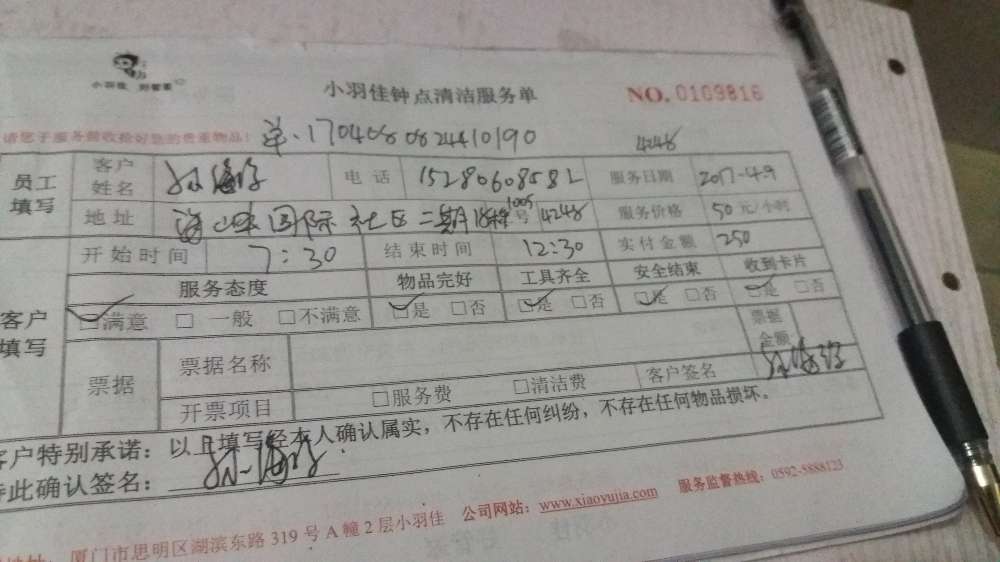 小羽佳 好管家
小羽佳钟点清洁服务单
NO. 0109816
请您于服务前收捡好您的贵重物品!
单:1704080824410190
4248
员工填写
客户姓名 孙海
电话 15280608582
服务日期 2017-4.9
地址 海峡国际社区二期 1005 号 4248
服务价格 50元/小时
开始时间 7:30
结束时间 12:30
实付金额 250
客户填写
服务态度 物品完好 工具齐全 安全结束 收到卡片
☑满意 □一般 □不满意 ☑是 □否 ☑是 □否 ☑是 □否 ☑是 □否
票据
票据名称
票据金额
开票项目 □服务费 □清洁费 客户签名 孙海
客户特别承诺:以上填写经本人确认属实,不存在任何纠纷,不存在任何物品损坏。
此确认签名: 孙海
厦门市思明区湖滨东路319号A幢2层小羽佳 公司网站:www.xiaoyujia.com 服务监督热线:0592-5888123